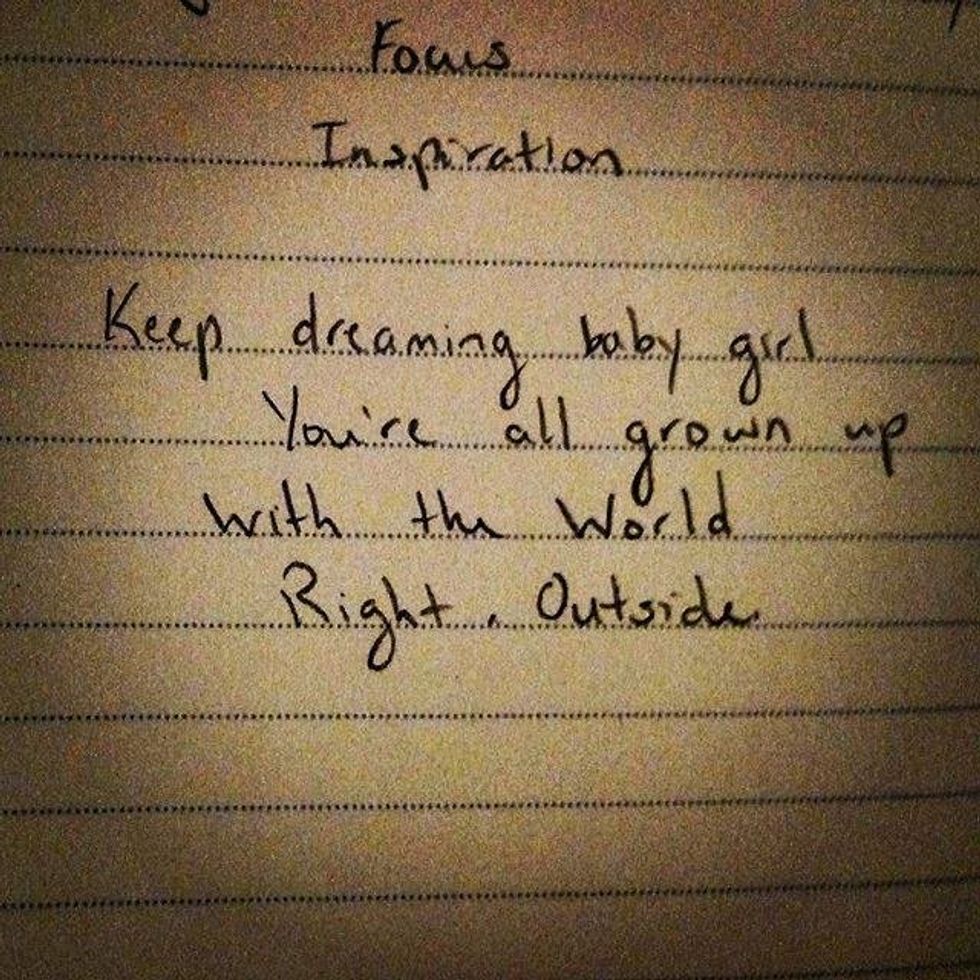 Focus
Inspiration
Keep dreaming baby girl
You're all grown up
With the World
Right. Outside.